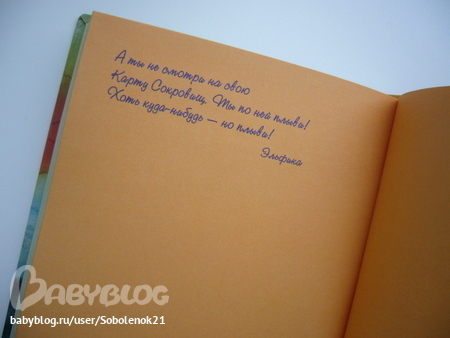 А ты не смотри на свою
Карту Сокровищ. Ты по ней плыви!
Хоть куда-нибудь — но плыви!
Эльфика
BABYBLOG
babyblog.ru/user/Sobolenok21